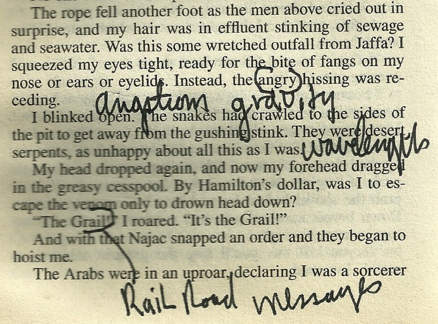 The rope fell another foot as the men above cried out in
surprise, and my hair was in effluent stinking of sewage
and seawater. Was this some wretched outfall from Jaffa? I
squeezed my eyes tight, ready for the bite of fangs on my
nose or ears or eyelids. Instead, the angry hissing was re-
ceding.
angstrom gravity
I blinked open. The snakes had crawled to the sides of
the pit to get away from the gushing stink. They were desert
serpents, as unhappy about all this as I was.
wavelengths
My head dropped again, and now my forehead dragged
in the greasy cesspool. By Hamilton's dollar, was I to es-
cape the venom only to drown head down?
"The Grail!" I roared. "It's the Grail!"
And with that Najac snapped an order and they began to
hoist me.
The Arabs were in an uproar, declaring I was a sorcerer
Rail Road messages